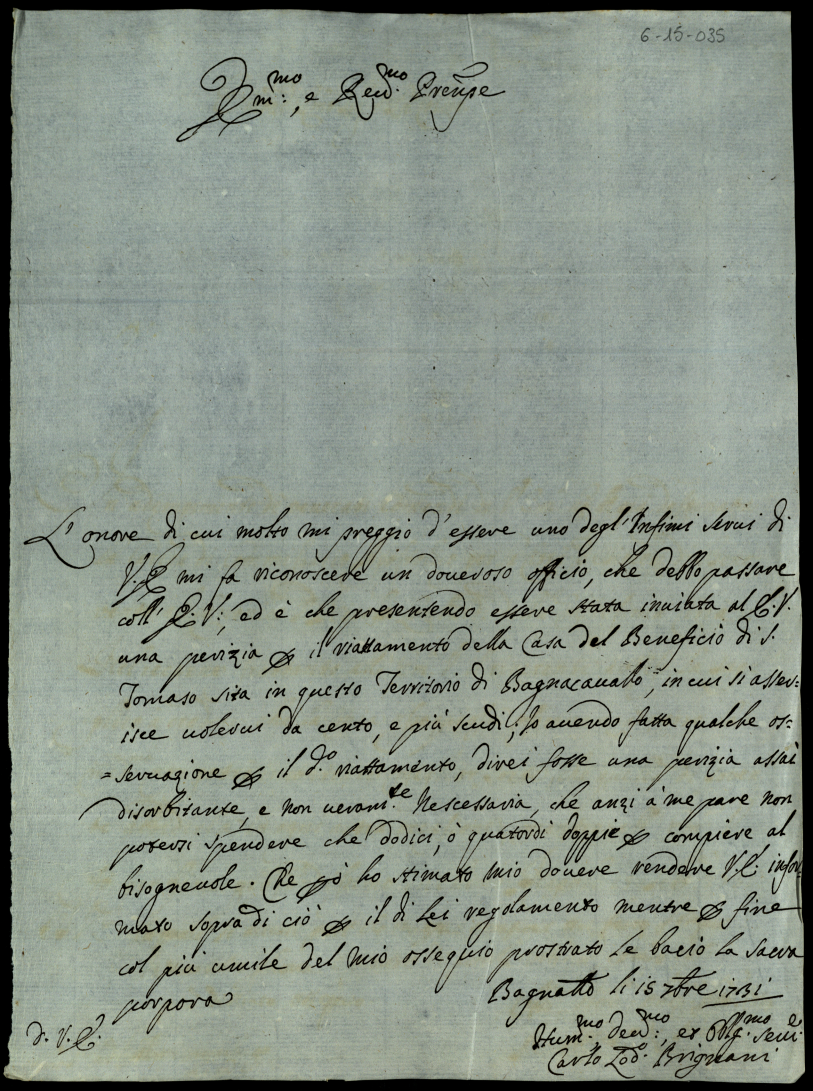 6-15-035
Em:mo, e Reud:mo Prenpe
L'onore di cui molto mi preggio d'essere uno degl'Infimi serui di
V.E. mi fa riconoscere un doueroso officio, che debbo passare
coll' E.V:, ed è che presentendo essere stata inuiata al E.V.
una perizia p il riattamento della Casa del Beneficio di S.
Tomaso sita in questo Territorio di Bagnacauallo, in cui si asser=
isce uolerui da cento, e più scudi; Io auendo fatta qualche os:
=seruazione p il d.o riattamento, direi fosse una perizia assai
disorbitante, e non ueram.te Nescessaria, che anzi à me pare non
potersi spendere che dodici, ò quatordi doppie p compiere al
bisogneuole. Che p ciò ho stimato mio douere rendere V.E. infor=
mato sopra di ciò p il di Lei regolamento mentre p fine
col più umile del mio ossequio prostrato Le bacio La sacra
porpora
Bagnallo li 15 7bre 1731
D. V.E.
Hum:mo deu:mo, et Obl:mo Seru.e
Carlo Lod.o Brignani